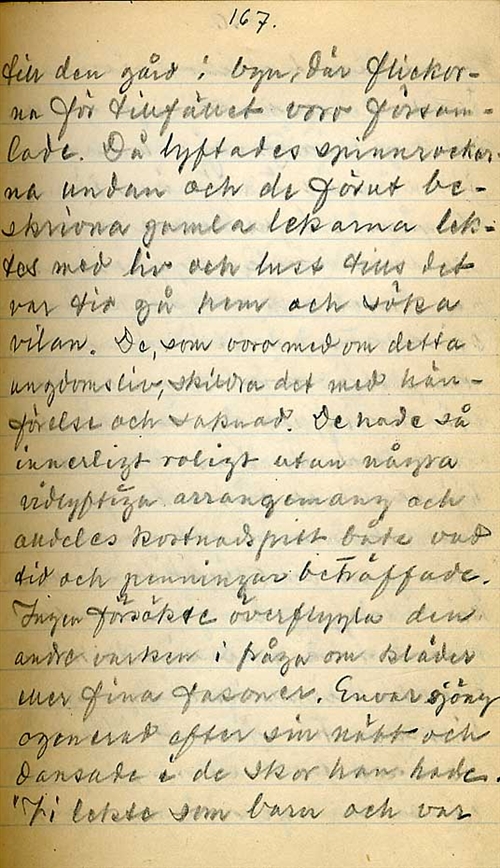 167.
till den gård i byn, där flickor-
na för tillfället voro försam-
lade. Då lyftades spinnrockar-
na undan och de förut be-
skrivna gamla lekarna lek-
tes med liv och lust tills det
var tid gå hem och söka
vilan. De, som voro med om detta
ungdomsliv, skildra det med hän-
förelse och saknad. De hade så
innerligt roligt utan några
vidlyftiga arrangemang och
alldeles kostnadsfritt både vad
tid och penningar beträffade.
Ingen försökte överflygla den
andre varken i fråga om kläder
eller fina fasoner. Envar sjöng
ogenerad efter sin näbb och
dansade i de skor han hade.
"Vi lekte som barn och var